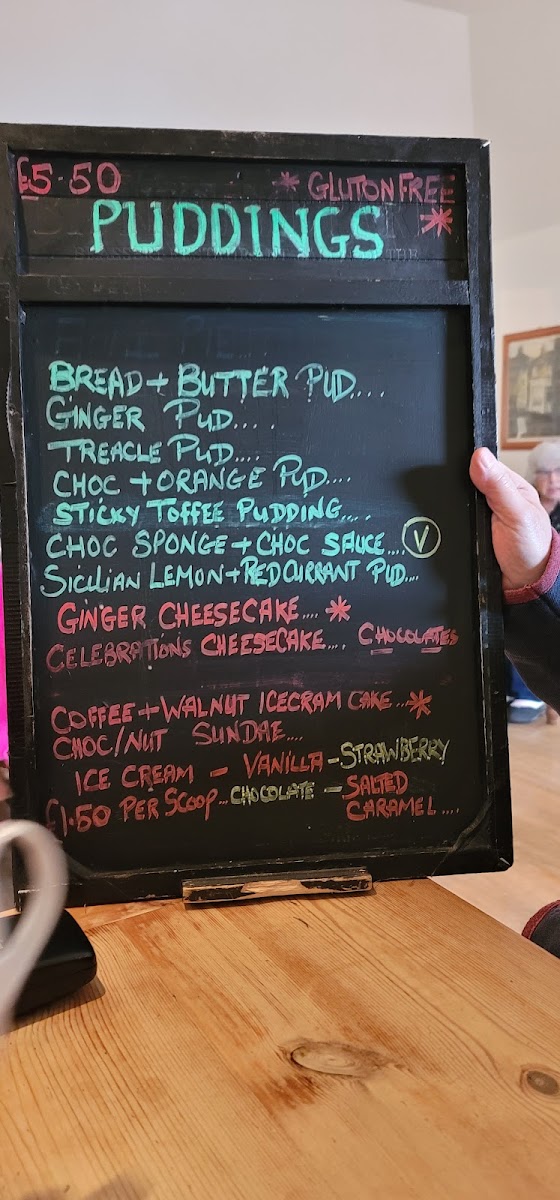 £5.50 * GLUTON FREE
PUDDINGS *
BREAD + BUTTER PUD....
GINGER PUD.... .
TREACLE PUD....
CHOC + ORANGE PUD....
STICKY TOFFEE PUDDING.... .
CHOC SPONGE + CHOC SAUCE.... V
SICILIAN LEMON + REDCURRANT PUD....
GINGER CHEESECAKE.... *
CELEBRATIONS CHEESECAKE.... CHOCOLATES
COFFEE + WALNUT ICECRAM CAKE...*
CHOC/NUT SUNDAE....
ICE CREAM - VANILLA - STRAWBERRY
£1.50 PER SCOOP... CHOCOLATE - SALTED
CARAMEL....